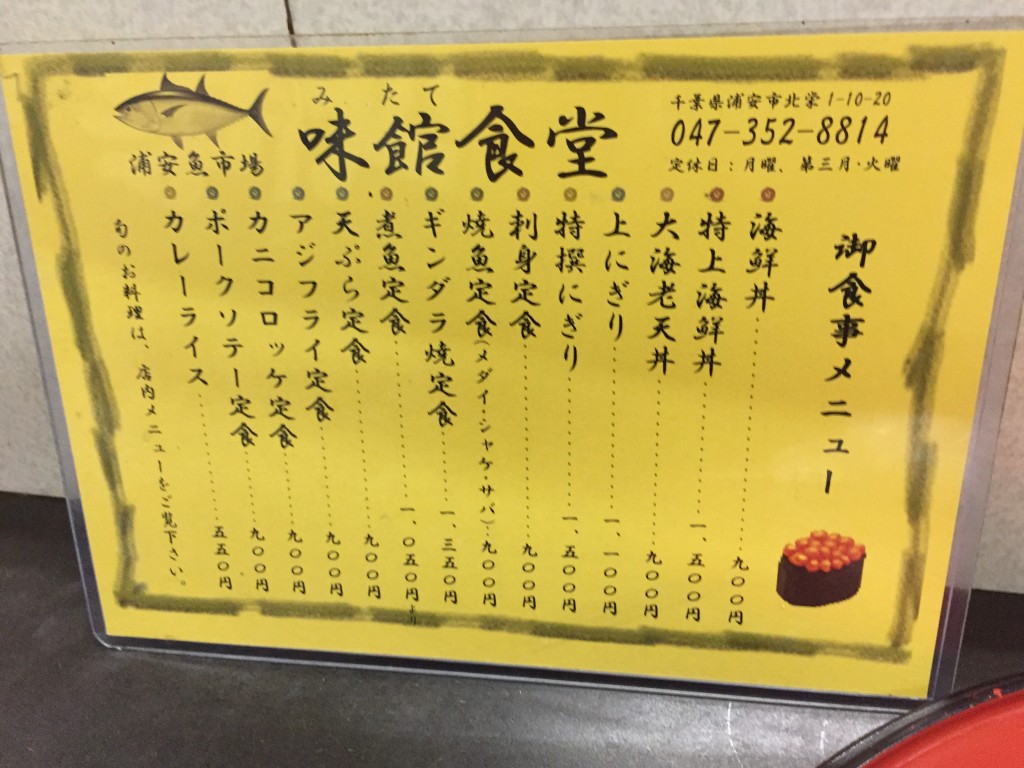 みたて
味館食堂
浦安魚市場
千葉県浦安市北栄1-10-20
047-352-8814
定休日：月曜、第三月・火曜
御食事メニュー
海鮮丼………九〇〇円
特上海鮮丼………一、五〇〇円
大海老天丼………九〇〇円
上にぎり………一、一〇〇円
特撰にぎり………一、五〇〇円
刺身定食………九〇〇円
焼魚定食(メダイ・シャケ・サバ)…九〇〇円
ギンダラ焼定食………一、三五〇円
煮魚定食………一、〇五〇円より
天ぷら定食………九〇〇円
アジフライ定食………九〇〇円
カニコロッケ定食………九〇〇円
ポークソテー定食………九〇〇円
カレーライス………五五〇円
旬のお料理は、店内メニューをご覧下さい。